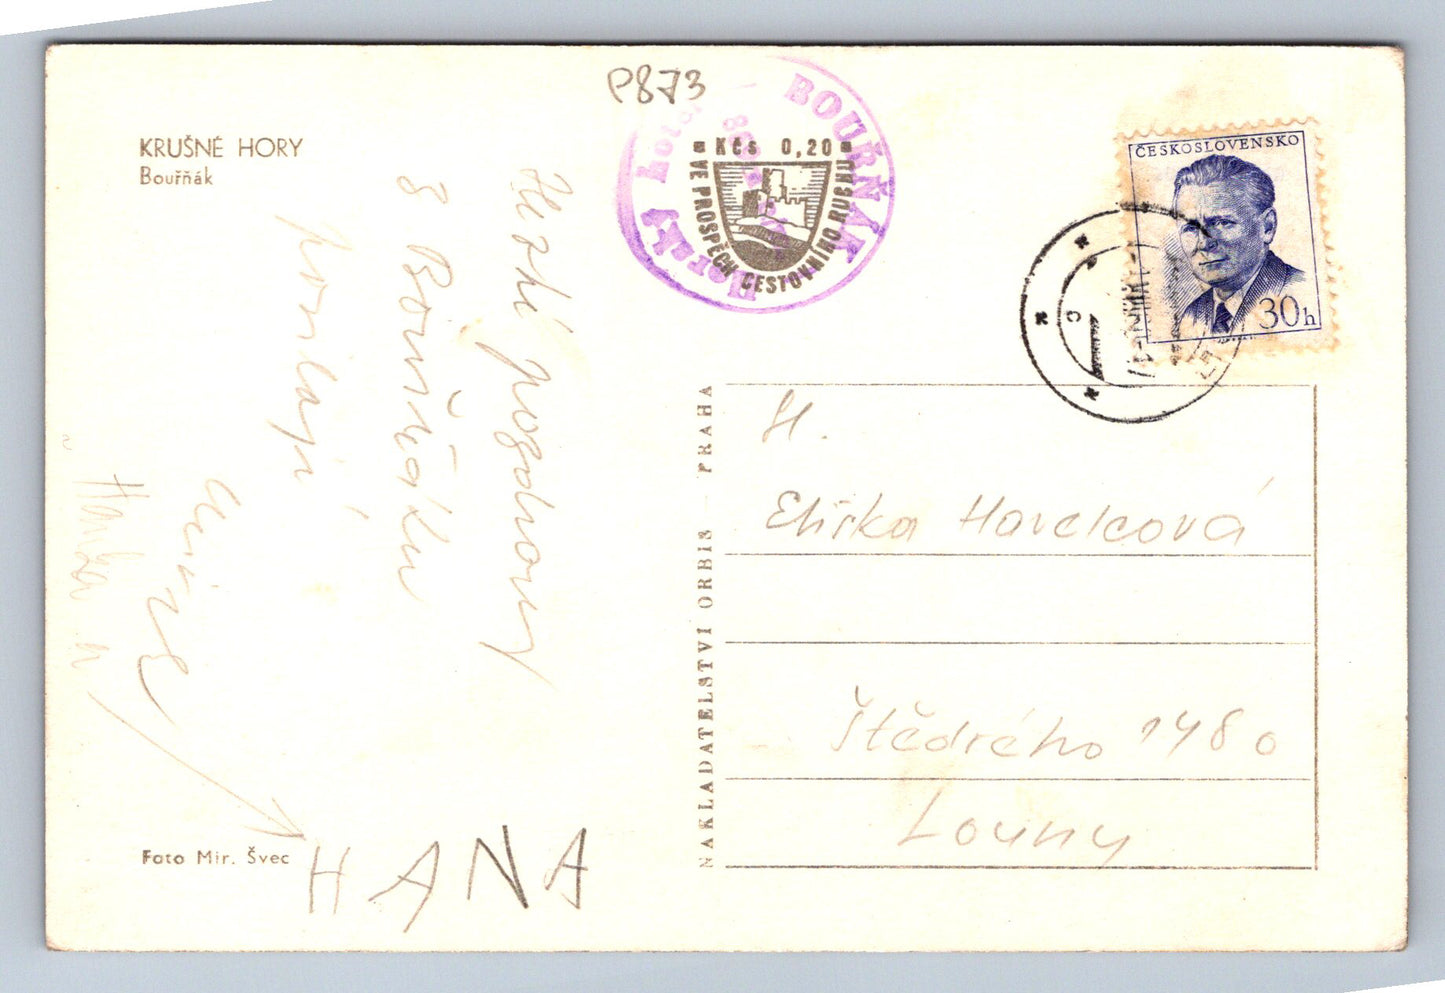 KRUŠNÉ HORY
Bouřňák
P873
Horský hotel BOUŘŇÁK
Kčs 0,20
VE PROSPĚCH CESTOVNÍHO RUCHU
ČESKOSLOVENSKO
30h
Hezké pozdravy
z Bouřňáku
posílají
Hanka a
HANA
Foto Mir. Švec
NAKLADATELSTVÍ ORBIS PRAHA
Sl.
Eliška Havelcová
Štědrého 1480
Louny